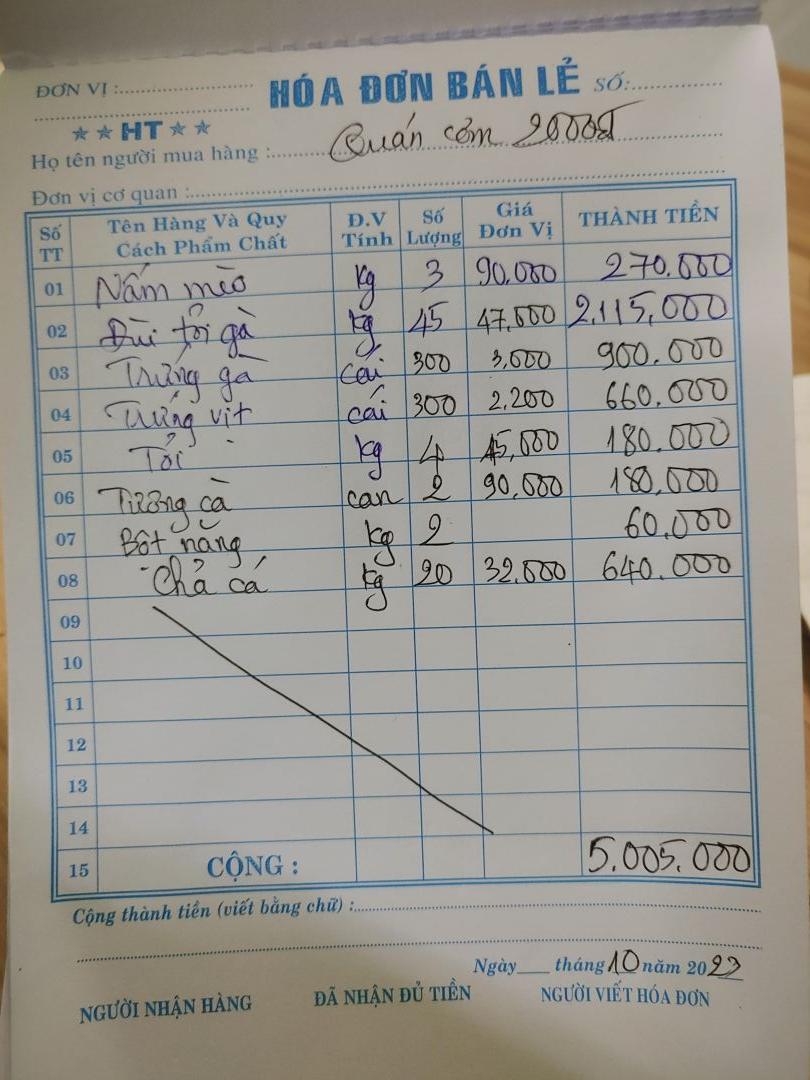 ĐƠN VỊ : HÓA ĐƠN BÁN LẺ SỐ:
★ ★ HT ★ ★
Họ tên người mua hàng : Quán cơm 2000đ
Đơn vị cơ quan :
Số TT Tên Hàng Và Quy Cách Phẩm Chất Đ.V Tính Số Lượng Giá Đơn Vị THÀNH TIỀN
01 Nấm mèo kg 3 90.000 270.000
02 Đùi tỏi gà kg 45 47.000 2.115.000
03 Trứng gà cái 300 3.000 900.000
04 Trứng vịt cái 300 2.200 660.000
05 Tỏi kg 4 45.000 180.000
06 Tương cà can 2 90.000 180.000
07 Bột năng kg 2 60.000
08 Chả cá kg 20 32.000 640.000
09
10
11
12
13
14
15 CỘNG : 5.005.000
Cộng thành tiền (viết bằng chữ) :
Ngày tháng 10 năm 2023
NGƯỜI NHẬN HÀNG ĐÃ NHẬN ĐỦ TIỀN NGƯỜI VIẾT HÓA ĐƠN